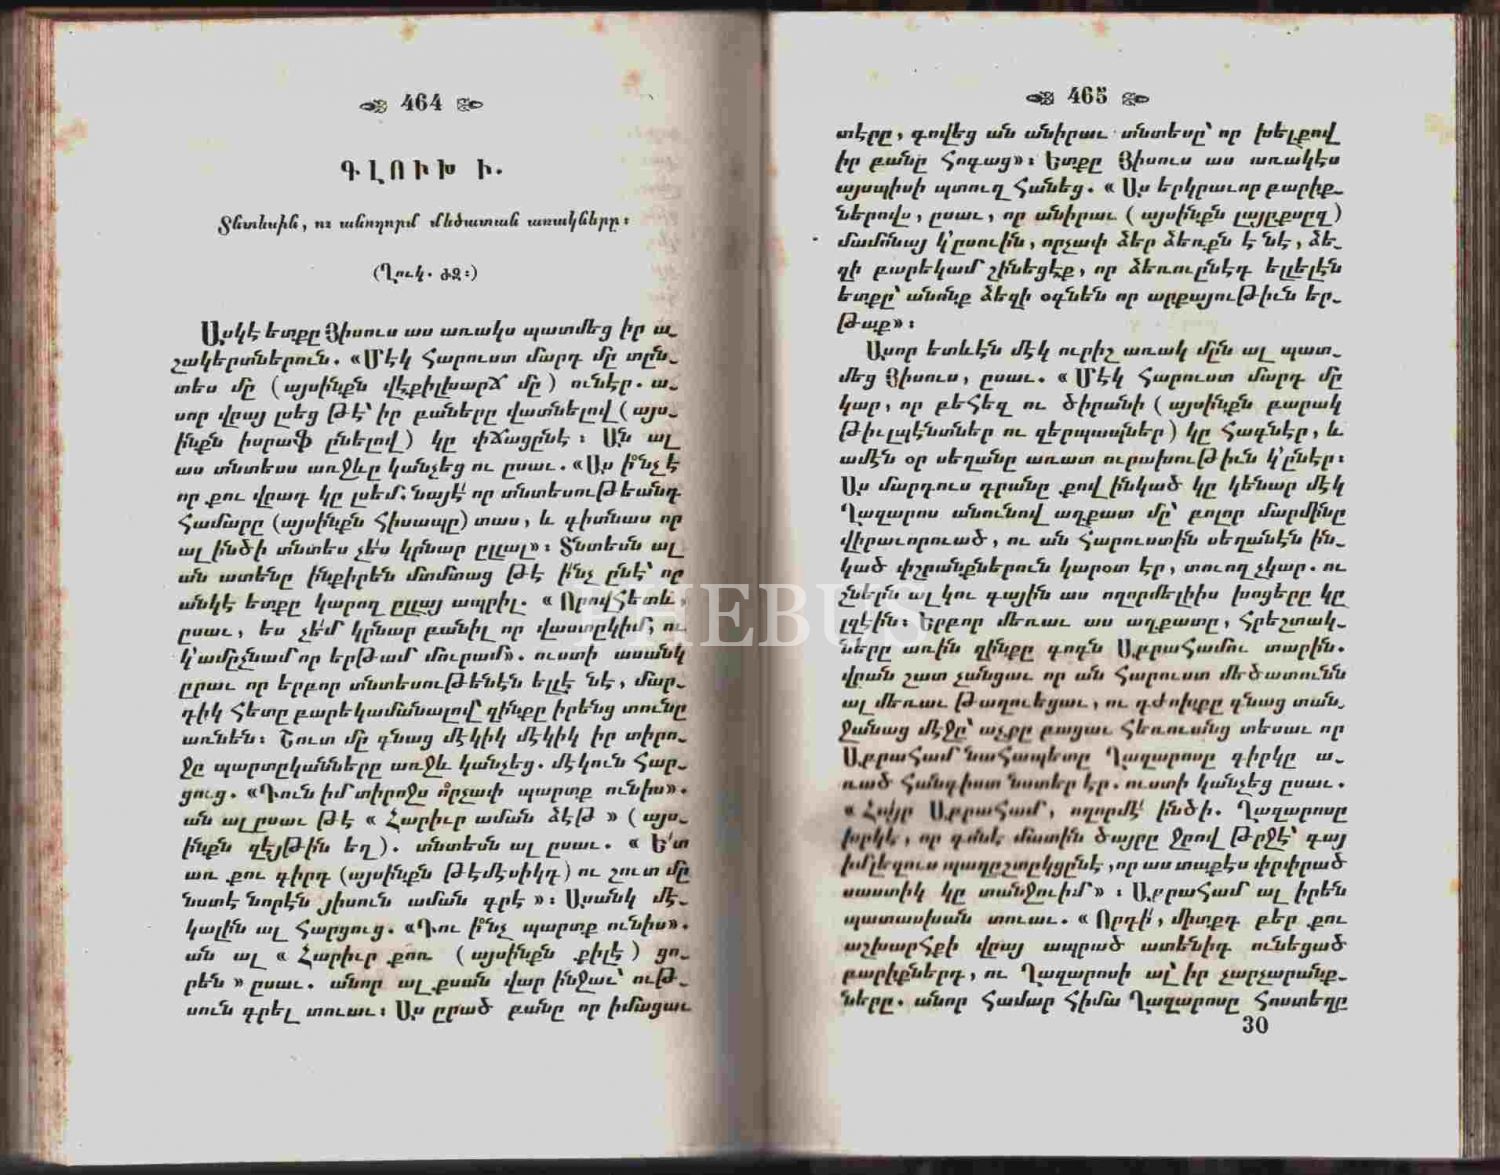 464
ԳԼՈՒԽ Ի.
Տնտեսին, ու անողորմ մեծատան առակները։
(Ղուկ. ԺԶ։)
Ասկէ ետքը Յիսուս աս առակս պատմեց իր ա-
շակերտներուն. «Մէկ հարուստ մարդ մը տըն-
տես մը (այսինքն վէքիլխարճ մը) ունէր. ա-
սոր վրայ լսեց թէ՝ իր բաները վատնելով (այս-
ինքն իսրաֆ ընելով) կը փճացընէ։ Ան ալ
աս տնտեսս առջևը կանչեց ու ըսաւ. «Աս ի՞նչ է
որ քու վրադ կը լսեմ. նայէ՛ որ տնտեսութեանդ
համարը (այսինքն հիսապը) տաս, և գիտնաս որ
ալ ինծի տնտես չես կրնար ըլլալ»։ Տնտեսն ալ
ան ատենը ինքիրեն մտմտաց թէ ի՛նչ ընէ՝ որ
անկէ ետքը կարող ըլլայ ապրիլ. «Որովհետև,
ըսաւ, ես չե՛մ կրնար բանիլ որ վաստըկիմ, ու
կ՚ամըչնամ որ երթամ մուրամ». ուստի ասանկ
ըրաւ որ երբոր տնտեսութենէն ելլէ նէ, մար-
դիկ հետը բարեկամանալով՝ զինքը իրենց տունը
առնեն։ Շուտ մը գնաց մէկիկ մէկիկ իր տիրո-
ջը պարտըկանները առջև կանչեց. մէկուն հար-
ցուց. «Դուն իմ տիրոջս ո՞րչափ պարտք ունիս».
ան ալ ըսաւ թէ «Հարիւր աման ձէթ» (այս-
ինքն զէյթին եղ). տնտեսն ալ ըսաւ. «Ե՛տ
առ քու գիրդ (այսինքն թէմէսիկդ) ու շուտ մը
նստէ նորէն յիսուն աման գրէ»։ Ասանկ մէ-
կալին ալ հարցուց. «Դու ի՞նչ պարտք ունիս».
ան ալ «Հարիւր քոռ (այսինքն քիլէ) ցո-
րեն» ըսաւ. անոր ալ քսան վար ինջաւ՝ ութ-
սուն գրել տուաւ։ Աս ըրած բանը որ իմացաւ
465
տէրը, գովեց ան անիրաւ տնտեսը՝ որ խելքով
իր բանը հոգաց»։ Ետքը Յիսուս աս առակէս
այսպիսի պտուղ հանեց. «Աս երկրաւոր բարիք-
ներովս, ըսաւ, որ անիրաւ (այսինքն լայըքսըզ)
մամոնայ կ՚ըսուին, որչափ ձեր ձեռքն է նէ, ձե-
զի բարեկամ շինեցէք, որ ձեռուընէդ ելլելէն
ետքը՝ անոնք ձեզի օգնեն որ արքայութիւն եր-
թաք»։
Ասոր ետևէն մէկ ուրիշ առակ մըն ալ պատ-
մեց Յիսուս, ըսաւ. «Մէկ հարուստ մարդ մը
կար, որ բեհեզ ու ծիրանի (այսինքն բարակ
թիւլպէնտներ ու զերպապներ) կը հագներ, և
ամէն օր սեղանը առատ ուրախութիւն կ՚ընէր։
Աս մարդուս դրանը քով ինկած կը կենար մէկ
Ղազարոս անունով աղքատ մը՝ բոլոր մարմինը
վիրաւորուած, ու ան հարուստին սեղանէն ին-
կած փշրանքներուն կարօտ էր, տուող չկար. ու
շներն ալ կու գային աս ողորմելիիս խոցերը կը
լզէին։ Երբոր մեռաւ աս աղքատը, հրեշտակ-
ները առին զինքը գոգն Աբրահամու տարին.
վրան շատ չանցաւ որ ան հարուստ մեծատունն
ալ մեռաւ թաղուեցաւ, ու դժոխքը գնաց տան-
ջանաց մէջը՝ աչքը բացաւ հեռուանց տեսաւ որ
Աբրահամ նահապետը Ղազարոսը գիրկը ա-
ռած հանգիստ նստեր էր. ուստի կանչեց ըսաւ.
«Հայր Աբրահամ, ողորմէ՛ ինծի. Ղազարոսը
խրկէ, որ գոնէ մատին ծայրը ջրով թրջէ՝ գայ
իմ լեզուս պաղըշտըկցընէ, որ աս տաքէս փրփրած
սաստիկ կը տանջուիմ»։ Աբրահամ ալ իրեն
պատասխան տուաւ. «Որդի՛, միտքդ բեր քու
աշխարհքի վրայ ապրած ատենիդ ունեցած
բարիքներդ, ու Ղազարոսի ալ՝ իր չարչարանք-
ները. անոր համար հիմա Ղազարոսը հոստեղը
30
PHEBUS